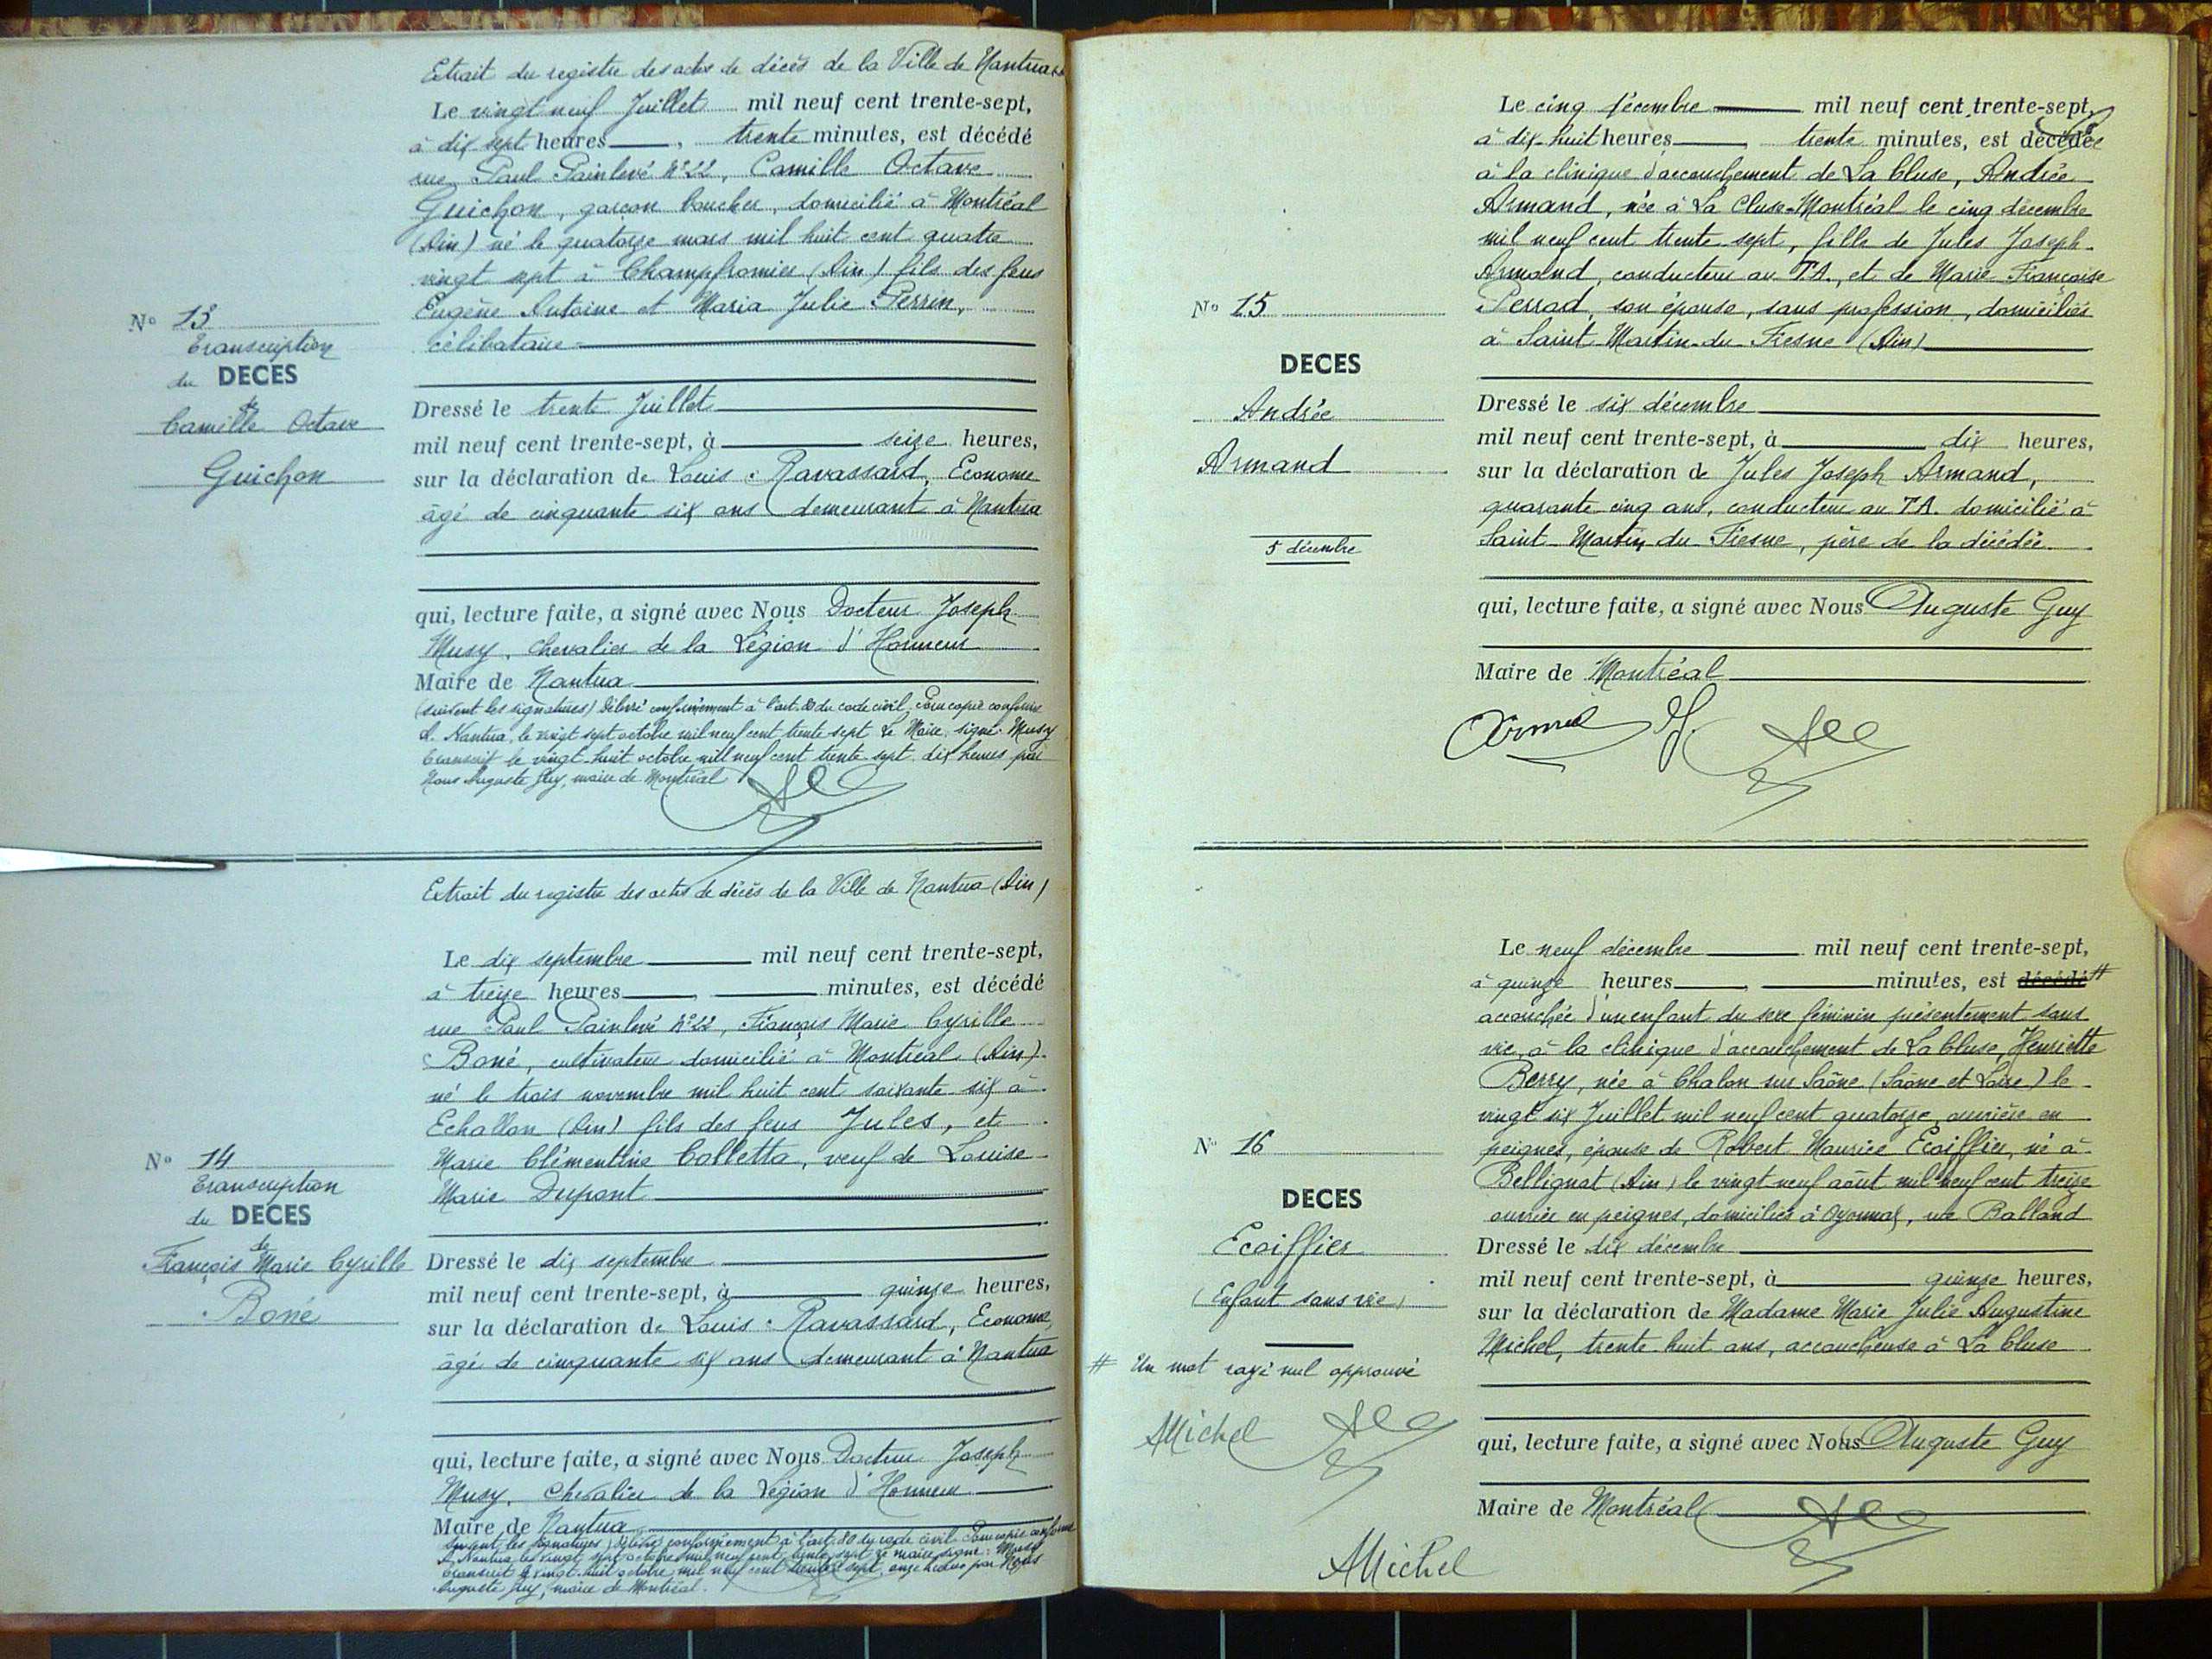 Extrait du registre des actes de décès de la Ville de Nantua
Le vingt neuf Juillet mil neuf cent trente-sept,
à dix sept heures, trente minutes, est décédé
rue Paul Painlevé N°22, Camille Octave
Guichon, garçon boucher, domicilié à Montréal
(Ain) né le quatorze mars mil huit cent quatre
vingt sept à Champfromier (Ain) fils des feus
Eugène Antoine et Maria Julie Perrin,
célibataire
N° 13
Transcription
du DECES
de
Camille Octave
Guichon
Dressé le trente Juillet
mil neuf cent trente-sept, à seize heures,
sur la déclaration de Louis Ravassard, Econome
âgé de cinquante six ans demeurant à Nantua
qui, lecture faite, a signé avec Nous Docteur Joseph
Musy, Chevalier de la Légion d'Honneur
Maire de Nantua
(suivent les signatures) Délivré conformément à l'art. 80 du code civil. Pour copie conforme
A Nantua, le vingt sept octobre mil neuf cent trente sept Le Maire signé: Musy
Transcrit le vingt-huit octobre mil neuf cent trente-sept dix heures par
Nous Auguste Guy, maire de Montréal
Extrait du registre des actes de décès de la Ville de Nantua (Ain)
Le dix septembre mil neuf cent trente-sept,
à treize heures, minutes, est décédé
rue Paul Painlevé N°22, François Marie Cyrille
Boné, cultivateur domicilié à Montréal (Ain)
né le trois novembre mil huit cent soixante six à
Echallon (Ain) fils des feus Jules, et
Marie Clémentine Colletta, veuf de Louise
Marie Dupont
N° 14
Transcription
du DECES
de
François Marie Cyrille
Boné
Dressé le dix septembre
mil neuf cent trente-sept, à quinze heures,
sur la déclaration de Louis Ravassard, Econome,
âgé de cinquante six ans demeurant à Nantua
qui, lecture faite, a signé avec Nous Docteur Joseph
Musy, Chevalier de la Légion d'Honneur
Maire de Nantua
suivent les signatures) Délivré conformément à l'art. 80 du code civil. Pour copie conforme
A Nantua, le vingt sept octobre mil neuf cent trente sept Le maire signé: Musy
Transcrit le vingt-huit octobre mil neuf cent trente sept, onze heures par Nous
Auguste Guy, maire de Montréal.
Le cinq décembre mil neuf cent trente-sept,
à dix-huit heures, trente minutes, est décédée
à la clinique d'accouchement de La Cluse, Andrée
Armand, née à La Cluse-Montréal le cinq décembre
mil neuf cent trente sept, fille de Jules Joseph
Armand, conducteur au T.A., et de Marie Françoise
Perrad, son épouse, sans profession, domiciliés
à Saint-Martin-du-Fresne (Ain)
N° 15
DECES
Andrée
Armand
5 décembre
Dressé le six décembre
mil neuf cent trente-sept, à dix heures,
sur la déclaration de Jules Joseph Armand,
quarante cinq ans, conducteur au T.A. domicilié à
Saint-Martin du Fresne, père de la décédée.
qui, lecture faite, a signé avec Nous Auguste Guy
Maire de Montréal
Le neuf décembre mil neuf cent trente-sept,
à quinze heures, minutes, est décédé #
accouchée d'un enfant du sexe féminin présentement sans
vie, à la clinique d'accouchement de La Cluse, Henriette
Berry, née à Chalon sur Saône (Saône et Loire) le
vingt six Juillet mil neuf cent quatorze, ouvrière en
peignes, épouse de Robert Maurice Ecoiffier, né à
Bellignat (Ain) le vingt neuf août mil neuf cent treize
ouvrier en peignes, domiciliés à Oyonnax, rue Balland
N° 16
DECES
Ecoiffier
(Enfant sans vie)
# Un mot rayé nul approuvé
AMichel
Dressé le dix décembre
mil neuf cent trente-sept, à quinze heures,
sur la déclaration de Madame Marie Julie Augustine
Michel, trente-huit ans, accoucheuse à La Cluse
qui, lecture faite, a signé avec Nous Auguste Guy
Maire de Montréal
AMichel